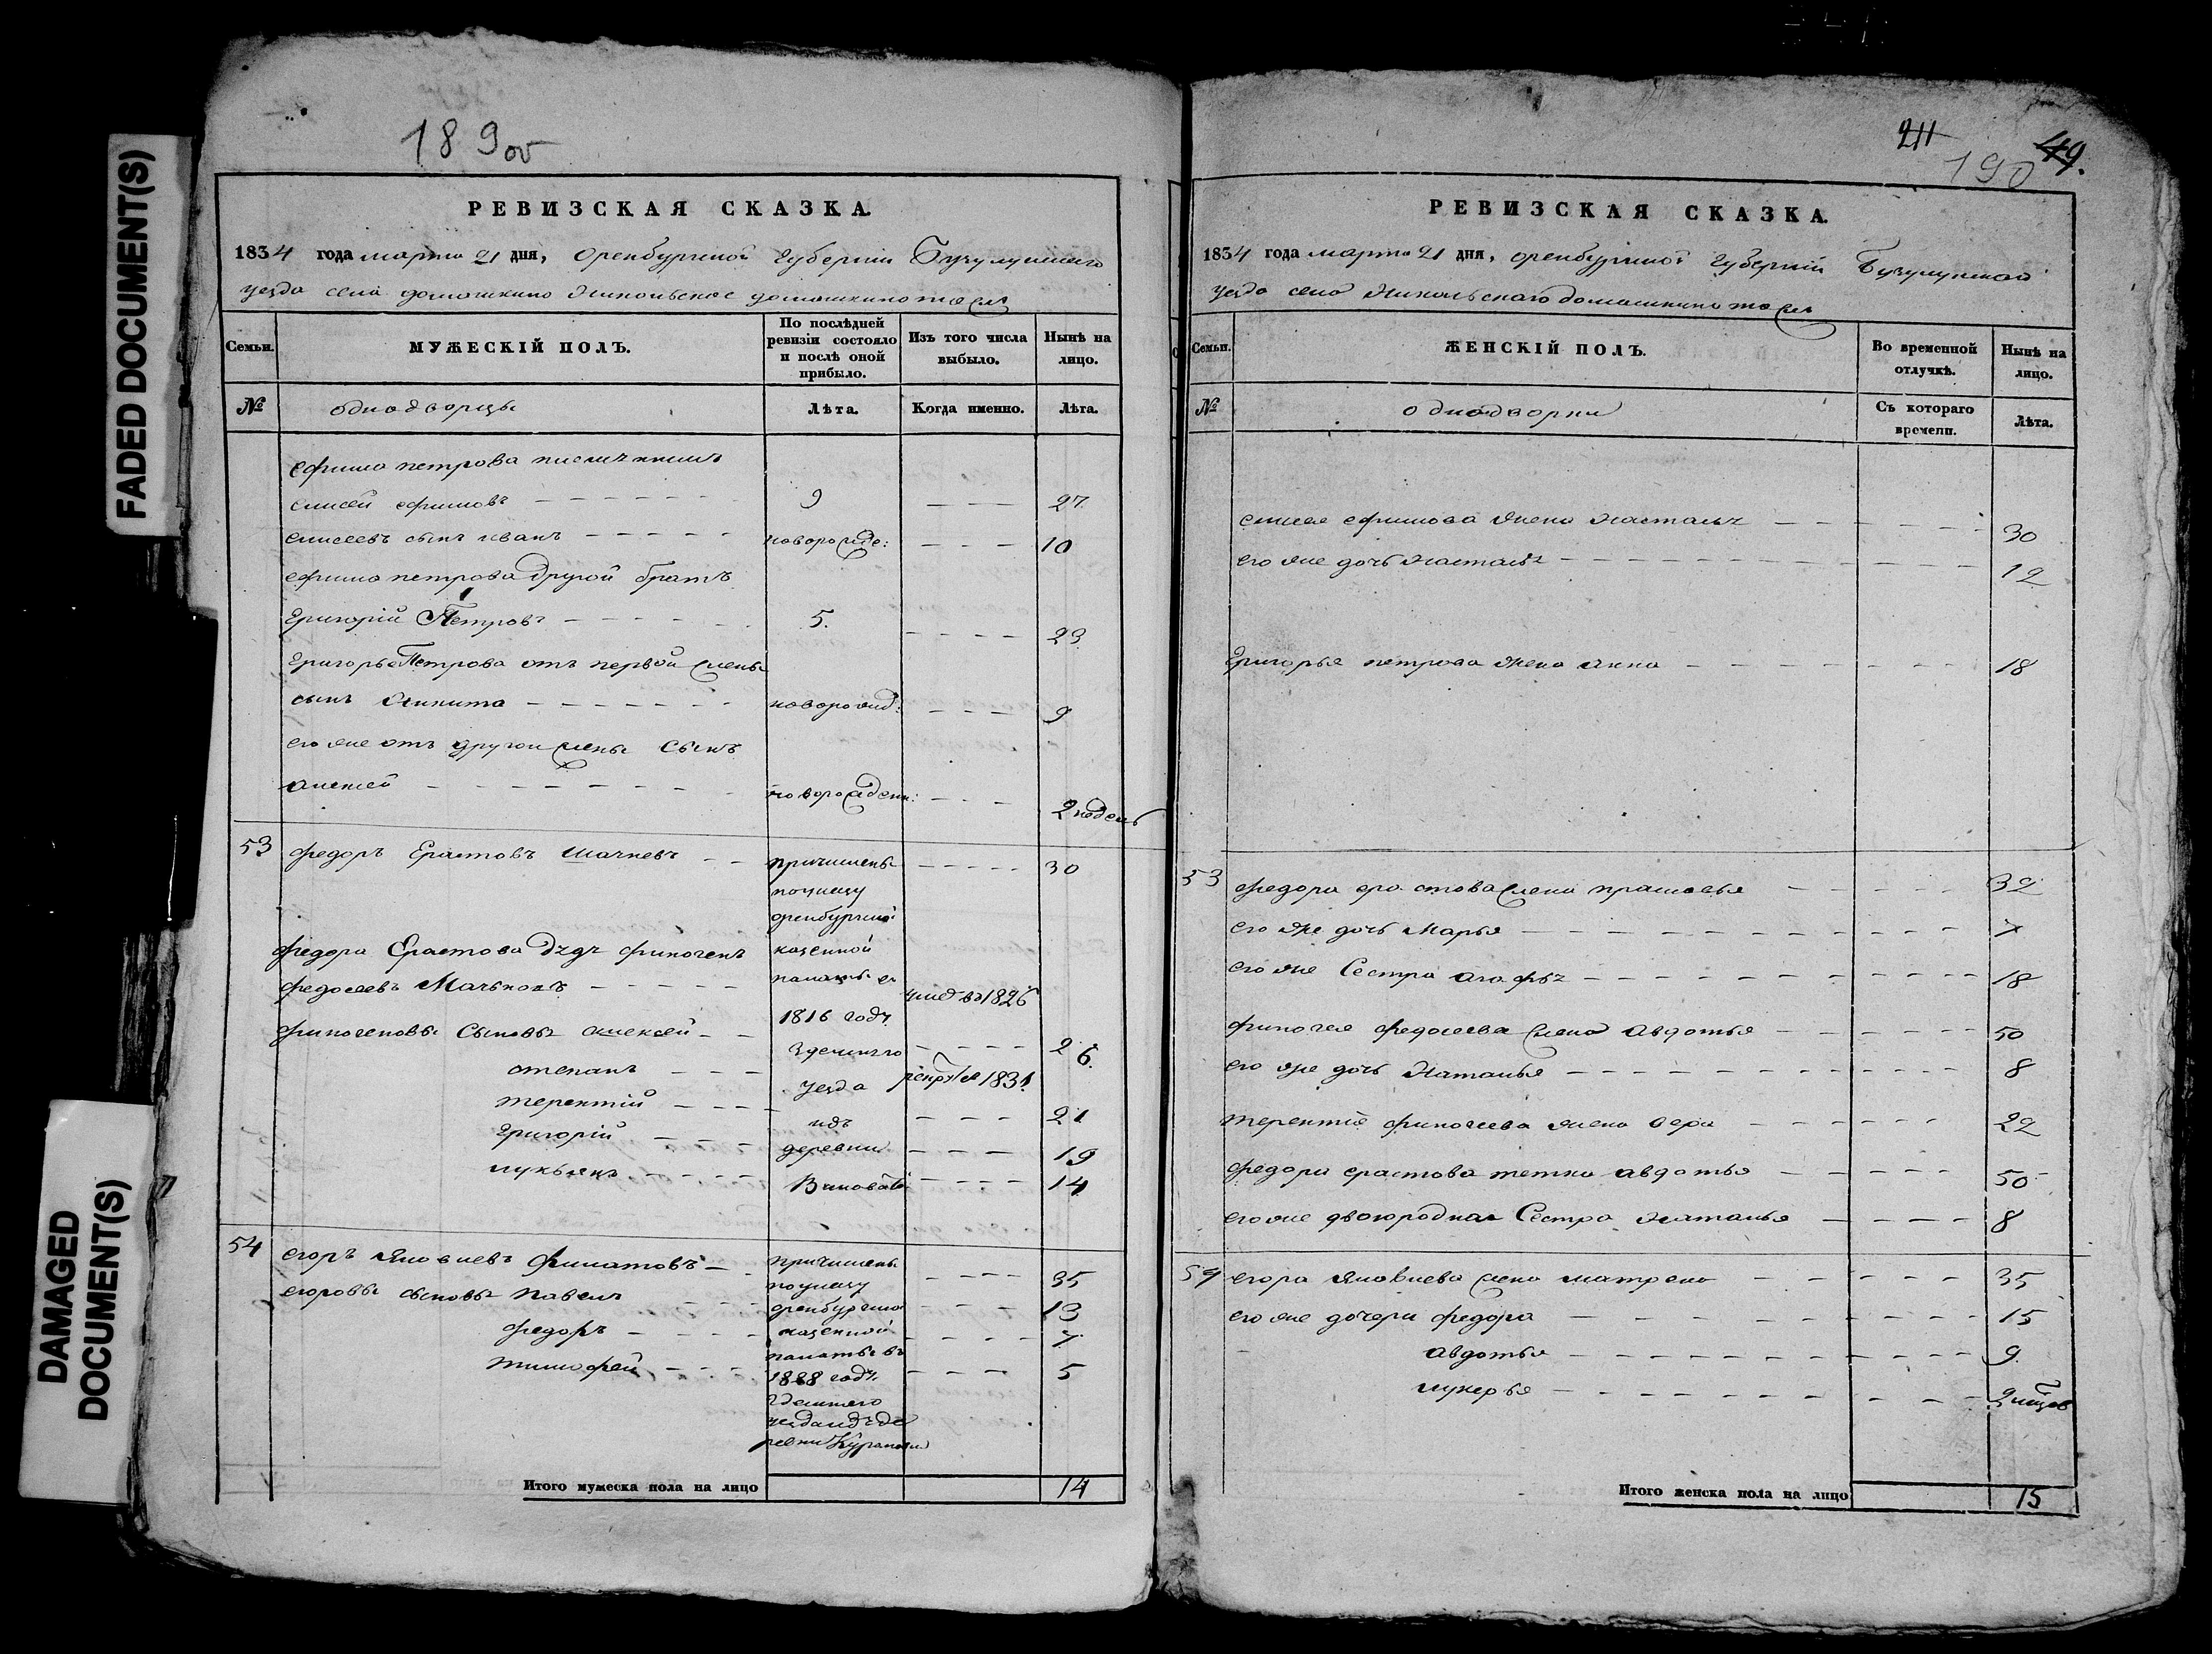 FADED DOCUMENT(S)
DAMAGED DOCUMENT(S)
189 об
РЕВИЗСКАЯ СКАЗКА.
1834 года марта 21 дня, Оренбургской губернии Бузулуцкаго
уезда села домашкино Никольское домашкино то ж
Семьи.
МУЖЕСКІЙ ПОЛЪ.
По послѣдней ревизіи состояло и послѣ оной прибыло.
Изъ того числа выбыло.
Нынѣ на лицо.
№
однодворцы
Лѣта.
Когда именно.
Лѣта.
ефима петрова
елисей ефимовъ 9 27
елисеевъ сынъ иванъ новорожде: 10
ефима петрова другой братъ
Григорій Петровъ 5. 23
Григорья Петрова отъ первой жены
сынъ Никита новорожд: 9
его же отъ другой жены сынъ
алексей новорожден: 2 недель
53 федоръ Ерастовъ 30
причислены
по указу
оренбургской
федора Ерастова дядя финогенъ казенной
федосеевъ палаты въ умеръ въ 1826
1816 годъ
финогеновы сыновья алексей 26
здешняго
степанъ уезда рекрут въ 1831
терентій изъ 21
Григорій деревни 19
лукьянъ 14
54 егоръ Яковлевъ Филатовъ причислены 35
егоровы сыновья павелъ по указу 13
федоръ оренбургской казенной 7
тимофей палаты въ 5
1828 годъ
здешняго
уезда изъ де
ревни
Итого мужеска пола на лицо 14
211
190
49.
РЕВИЗСКАЯ СКАЗКА.
1834 года марта 21 дня, оренбургской губерніи Бузулуцкой
уезда села Никольскаго домашкино то ж
Семьи.
ЖЕНСКІЙ ПОЛЪ.
Во временной отлучкѣ.
Нынѣ на лицо.
№
однодворки
Съ котораго времени.
Лѣта.
елисея ефимова жена Настасья 30
его же дочь Настасья 12
Григорья петрова жена анна 18
53 федора ерастова жена прасковья 32
его же дочь Марья 7
его же Сестра агафья 18
финогея федосеева жена авдотья 50
его же дочь Наталья 8
терентия финогеева жена вера 22
федора ерастова тетка авдотья 50
его же двоюродная Сестра Наталья 8
54 егора Яковлева жена матрена 35
его же дочери федора 15
авдотья 9.
лукерья 2
Итого женска пола на лицо 15